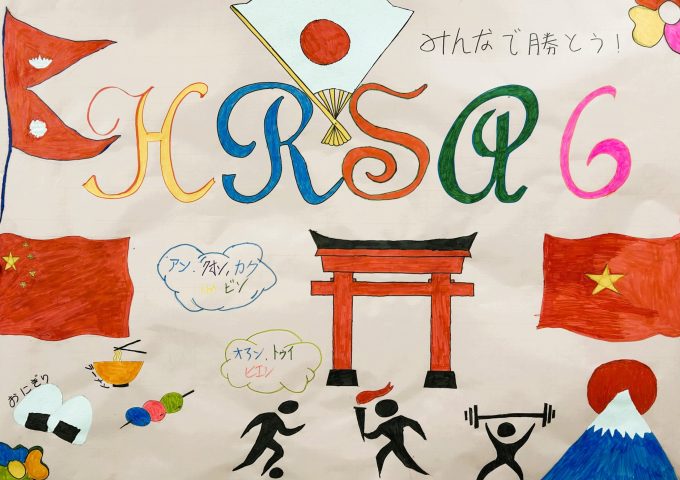 みんなで勝とう!
HRSA 6
アン、クオン、カク
ビン
オアン、トゥイ
ラーメン
おにぎり